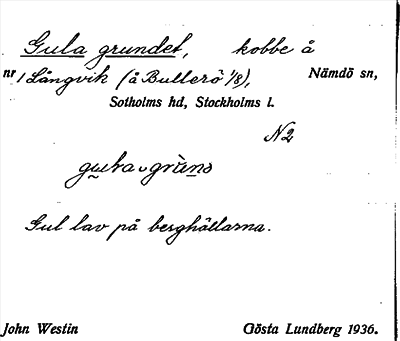 Gula grundet, kobbe å
nr 1 Långvik (å Bullerö 1/8), Nämdö sn,
Sotholms hd, Stockholms l.
N2
Gul lav på berghällarna.
John Westin Gösta Lundberg 1936.